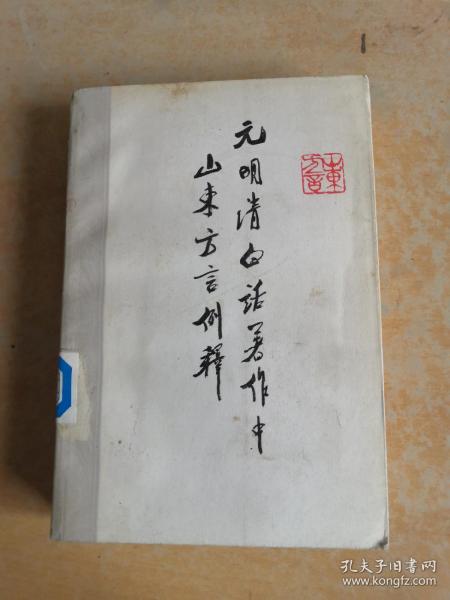 元明清白话著作中
山东方言例釋
山東方言
孔夫子旧书网
www.kongfz.com